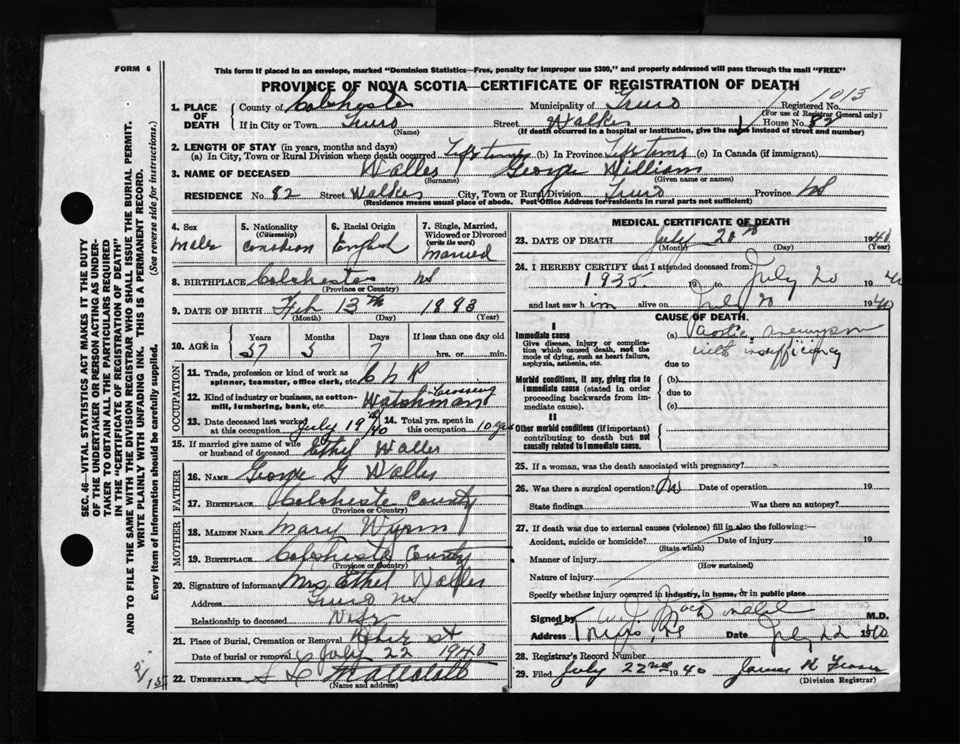 FORM 6
This form if placed in an envelope, marked "Dominion Statistics—Free, penalty for improper use $300," and properly addressed will pass through the mail "FREE"
PROVINCE OF NOVA SCOTIA—CERTIFICATE OF REGISTRATION OF DEATH
1013
1. PLACE OF DEATH
County of Colchester Municipality of Truro Registered No.
(For use of Registrar General only)
If in City or Town Truro Street Walker House No. 82
(Name) (If death occurred in a hospital or institution, give the name instead of street and number)
2. LENGTH OF STAY (in years, months and days)
(a) In City, Town or Rural Division where death occurred (b) In Province (c) In Canada (if immigrant)
3. NAME OF DECEASED Waller George William
(Surname) (Given name or names)
RESIDENCE No. 82 Street Walker City, Town or Rural Division Truro Province NS
(Residence means usual place of abode. Post Office Address for residents in rural parts not sufficient)
4. Sex
Male
5. Nationality
(Citizenship)
Canadian
6. Racial Origin
English
7. Single, Married, Widowed or Divorced
(write the word)
Married
8. BIRTHPLACE Colchester NS
(Province or Country)
9. DATE OF BIRTH Feb 13th 1883
(Month) (Day) (Year)
10. AGE in Years Months Days If less than one day old
57 7 hrs. or min.
OCCUPATION
11. Trade, profession or kind of work as spinner, teamster, office clerk, etc.
12. Kind of industry or business, as cotton-mill, lumbering, bank, etc. Crossing Watchman
13. Date deceased last worked at this occupation July 19 /40
14. Total yrs. spent in this occupation 10 yrs
15. If married give name of wife or husband of deceased Ethel Waller
FATHER
16. NAME George G Waller
17. BIRTHPLACE Colchester County
(Province or Country)
MOTHER
18. MAIDEN NAME Mary
19. BIRTHPLACE Colchester County
(Province or Country)
20. Signature of informant Mrs Ethel Waller
Address Truro NS
Relationship to deceased Wife
21. Place of Burial, Cremation or Removal
Date of burial or removal July 22 1940
22. UNDERTAKER
(Name and address)
MEDICAL CERTIFICATE OF DEATH
23. DATE OF DEATH July 20th 1940
(Month) (Day) (Year)
24. I HEREBY CERTIFY that I attended deceased from:
1935 19 to July 20 1940
and last saw him alive on July 20 1940
CAUSE OF DEATH
I
Immediate cause
Give disease, injury or complication which caused death, not the mode of dying, such as heart failure, asphyxia, asthenia, etc.
(a) Aortic aneurysm with insufficiency
due to
Morbid conditions, if any, giving rise to immediate cause (stated in order proceeding backwards from immediate cause).
(b)
due to
(c)
II
Other morbid conditions (if important) contributing to death but not causally related to immediate cause.
25. If a woman, was the death associated with pregnancy?
26. Was there a surgical operation? No Date of operation 19
State findings Was there an autopsy?
27. If death was due to external causes (violence) fill in also the following:—
Accident, suicide or homicide? Date of injury 19
(State which)
Manner of injury
(How sustained)
Nature of injury
Specify whether injury occurred in industry, in home, or in public place
Signed by M.D.
Address Truro, NS Date July 22 1940
28. Registrar's Record Number
29. Filed July 22nd 1940 James
(Division Registrar)
SEC. 46—VITAL STATISTICS ACT MAKES IT THE DUTY
OF THE UNDERTAKER OR PERSON ACTING AS UNDER-
TAKER TO OBTAIN ALL THE PARTICULARS REQUIRED
IN THE "CERTIFICATE OF REGISTRATION OF DEATH"
AND TO FILE THE SAME WITH THE DIVISION REGISTRAR WHO SHALL ISSUE THE BURIAL PERMIT.
WRITE PLAINLY WITH UNFADING INK. THIS IS A PERMANENT RECORD.
Every item of information should be carefully supplied. (See reverse side for instructions.)